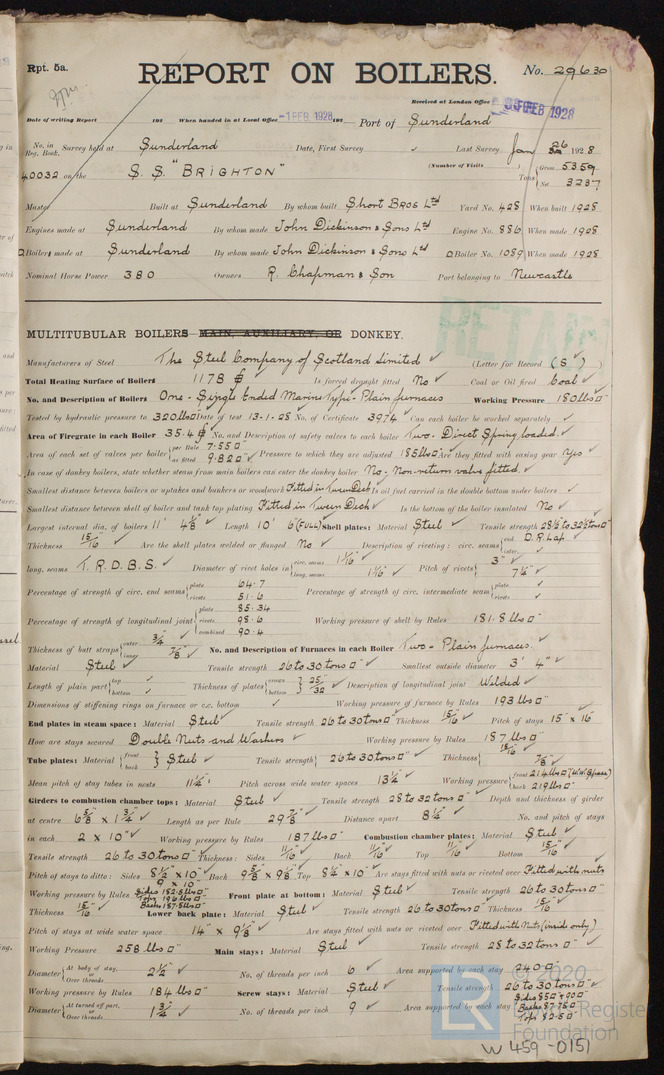 Rpt. 5a.
REPORT ON BOILERS.
No. 29630
Received at London Office
FEB 1928
Date of writing Report 192 When handed in at Local Office -1 FEB 1928 192 Port of Sunderland
No. in Reg. Book. Survey held at Sunderland Date, First Survey ✓ Last Survey Jan 26 1928
(Number of Visits
40032 on the S.S. "BRIGHTON" Tons { Gross 5359
Net 3237
Master Built at Sunderland By whom built Short Bros Ltd Yard No. 428 When built 1928
Engines made at Sunderland By whom made John Dickinson & Sons Ltd Engine No. 886 When made 1928
D Boilers made at Sunderland By whom made John Dickinson & Sons Ltd D Boiler No. 1089 When made 1928
Nominal Horse Power 380 Owners R. Chapman & Son Port belonging to Newcastle
RETAIN
MULTITUBULAR BOILERS MAIN, AUXILIARY, OR DONKEY.
Manufacturers of Steel The Steel Company of Scotland Limited ✓ (Letter for Record (S) ✓)
Total Heating Surface of Boilers 1178 Is forced draught fitted No ✓ Coal or Oil fired Coal ✓
No. and Description of Boilers One - Single Ended Marine Type - Plain furnaces Working Pressure 180 lbs □"
Tested by hydraulic pressure to 320 lbs □" Date of test 13-1-28 No. of Certificate 3974 Can each boiler be worked separately ✓
Area of Firegrate in each Boiler 35.4 No. and Description of safety valves to each boiler Two - Direct Spring loaded. ✓
Area of each set of valves per boiler { per Rule 7.55 □"
as fitted 9.82 □" ✓ Pressure to which they are adjusted 185 lbs □" Are they fitted with easing gear yes ✓
In case of donkey boilers, state whether steam from main boilers can enter the donkey boiler No - Non-return valve fitted. ✓
Smallest distance between boilers or uptakes and bunkers or woodwork Fitted in Tween Deck Is oil fuel carried in the double bottom under boilers ✓
Smallest distance between shell of boiler and tank top plating Fitted in Tween Deck ✓ Is the bottom of the boiler insulated No ✓
Largest internal dia. of boilers 11' 4⅛" ✓ Length 10' 6" (FULL) Shell plates: Material Steel ✓ Tensile strength 28½ to 32½ tons □"
Thickness 15/16" ✓ Are the shell plates welded or flanged No ✓ Description of riveting: circ. seams { end D.R. Lap ✓
inter. ✓
long. seams T.R.D.B.S. ✓ Diameter of rivet holes in { circ. seams 1 1/16" ✓
long. seams 1 1/16" ✓ Pitch of rivets { 3" ✓
7¼" ✓
Percentage of strength of circ. end seams { plate 64.7
rivets 51.6 Percentage of strength of circ. intermediate seam { plate ✓
rivets ✓
Percentage of strength of longitudinal joint { plate 85.34
rivets 98.6
combined 90.4 Working pressure of shell by Rules 181.8 lbs □"
Thickness of butt straps { outer ¾" ✓
inner ⅞" ✓ No. and Description of Furnaces in each Boiler Two - Plain furnaces. ✓
Material Steel ✓ Tensile strength 26 to 30 tons □" ✓ Smallest outside diameter 3' 4" ✓
Length of plain part { top ✓
bottom ✓ Thickness of plates { crown
bottom } 25/32" ✓ Description of longitudinal joint Welded ✓
Dimensions of stiffening rings on furnace or c.c. bottom ✓ Working pressure of furnace by Rules 193 lbs □"
End plates in steam space: Material Steel ✓ Tensile strength 26 to 30 tons □" Thickness 15/16" ✓ Pitch of stays 15" x 16"
How are stays secured Double Nuts and Washers ✓ Working pressure by Rules 187 lbs □" ✓
Tube plates: Material { front
back } Steel ✓ Tensile strength { 26 to 30 tons □" ✓ Thickness { 15/16" ✓
⅞" ✓
Mean pitch of stay tubes in nests 11¼" ✓ Pitch across wide water spaces 13¼" ✓ Working pressure { front 214 lbs □" (W.W. Space)
back 219 lbs □"
Girders to combustion chamber tops: Material Steel ✓ Tensile strength 28 to 32 tons □" ✓ Depth and thickness of girder
at centre 6⅝" x 1¾" ✓ Length as per Rule 29⅞" ✓ Distance apart 8¼" ✓ No. and pitch of stays
in each 2 x 10" ✓ Working pressure by Rules 187 lbs □" Combustion chamber plates: Material Steel ✓
Tensile strength 26 to 30 tons □" ✓ Thickness: Sides 11/16" ✓ Back 11/16" ✓ Top 11/16" ✓ Bottom 15/16" ✓
Pitch of stays to ditto: Sides 8½" x 10" ✓ Back 9⅝" x 9⅛" ✓ Top 8¼" x 10" ✓ Are stays fitted with nuts or riveted over Fitted with nuts
9 x 10
Working pressure by Rules Sides 182.8 lbs □"
Tops 196 lbs □"
Backs 187.5 lbs □" Front plate at bottom: Material Steel ✓ Tensile strength 26 to 30 tons □"
Thickness 15/16" ✓ Lower back plate: Material Steel ✓ Tensile strength 26 to 30 tons □" ✓ Thickness 15/16" ✓
Pitch of stays at wide water space 14" x 9⅛" ✓ Are stays fitted with nuts or riveted over Fitted with Nuts (inside only) ✓
Working Pressure 258 lbs □" ✓ Main stays: Material Steel ✓ Tensile strength 28 to 32 tons □" ✓
Diameter { At body of stay, or Over threads 2½" ✓ No. of threads per inch 6 ✓ Area supported by each stay 240 □"
Working pressure by Rules 184 lbs □" ✓ Screw stays: Material Steel ✓ Tensile strength 26 to 30 tons □" ✓
Diameter { At turned off part, or Over threads 1¾" ✓ No. of threads per inch 9 ✓ Area supported by each stay Sides 85 □" & 90 □"
Backs 87.75 □"
Tops 82.5 □"
© 2020
Lloyd's Register
Foundation
LR
W459-0151